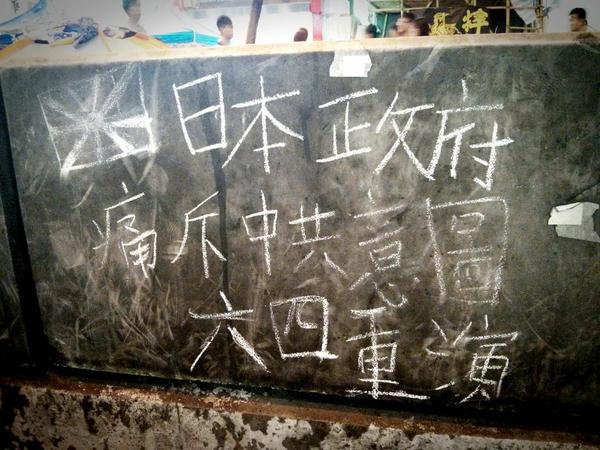 日本政府
痛斥中共意圖
六四重演